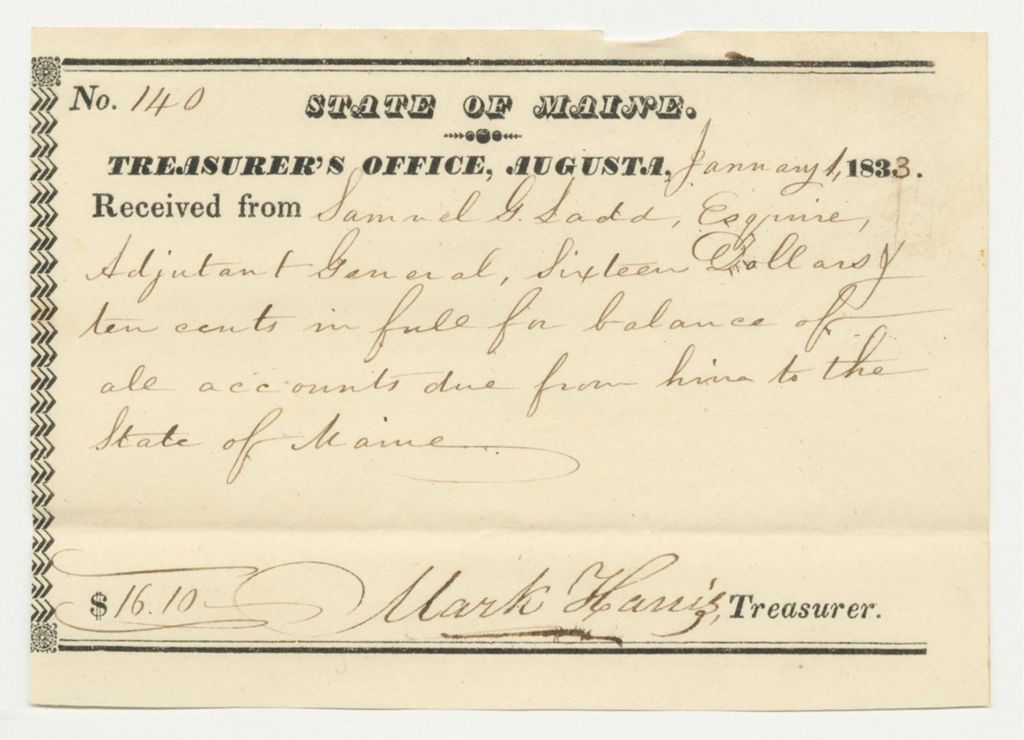 No. 140
STATE OF MAINE.
TREASURER'S OFFICE, AUGUSTA, January 1, 1833.
Received from Samuel G. Ladd, Esquire,
Adjutant General, Sixteen Dollars &
ten cents in full for balance of
all accounts due from him to the
State of Maine
$ 16.10 Mark Harris, Treasurer.